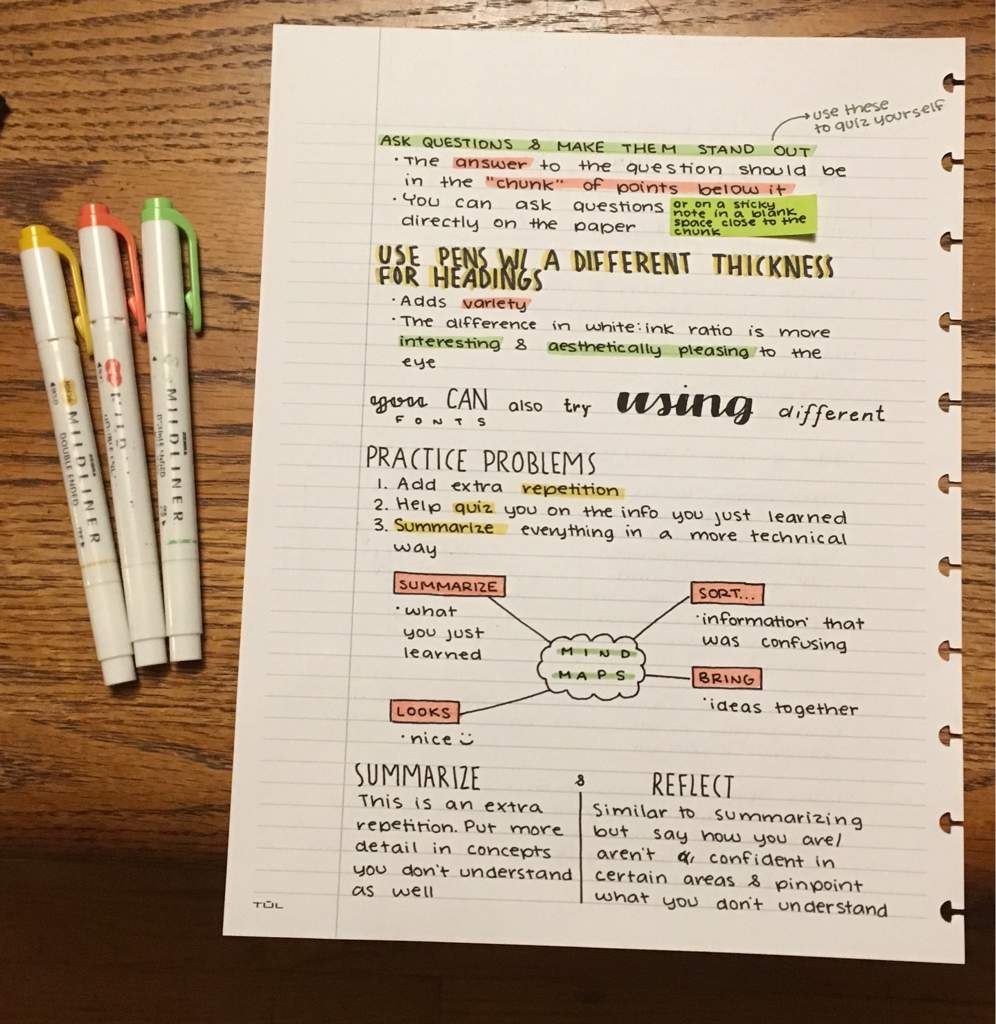 use these
to quiz yourself
ASK QUESTIONS & MAKE THEM STAND OUT
· The answer to the question should be
in the "chunk" of points below it
· You can ask questions
directly on the paper
or on a sticky
note in a blank
space close to the
chunk
USE PENS W/ A DIFFERENT THICKNESS
FOR HEADINGS
· Adds variety
· The difference in white:ink ratio is more
interesting & aesthetically pleasing to the
eye
you CAN also try using different
FONTS
PRACTICE PROBLEMS
1. Add extra repetition
2. Help quiz you on the info you just learned
3. Summarize everything in a more technical
way
SUMMARIZE
· what
you just
learned
SORT...
· information that
was confusing
MIND
MAPS
BRING
· ideas together
LOOKS
· nice
SUMMARIZE & REFLECT
This is an extra
repetition. Put more
detail in concepts
you don't understand
as well
Similar to summarizing
but say how you are/
aren't confident in
certain areas & pinpoint
what you don't understand
TÜL
MILDLINER
DOUBLE ENDED
MILDLINER